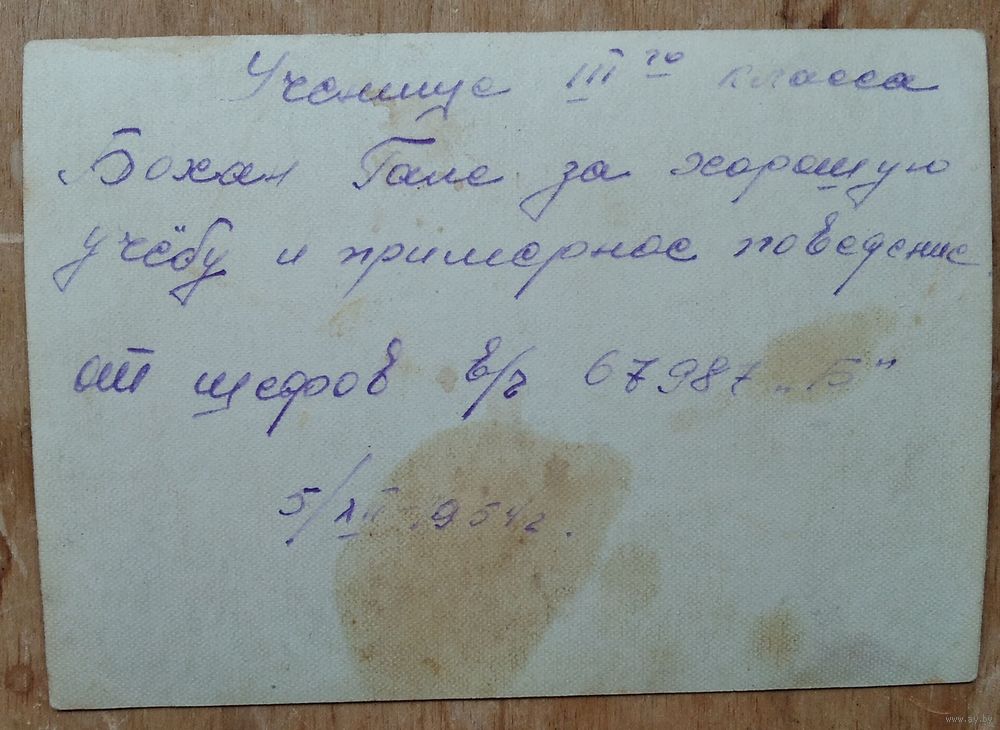 Ученице III го класса
Бохан Гале за хорошую
учёбу и примерное поведение
от шефов в/ч 67987 „Б"
5/XII 1954г.
www.ay.by